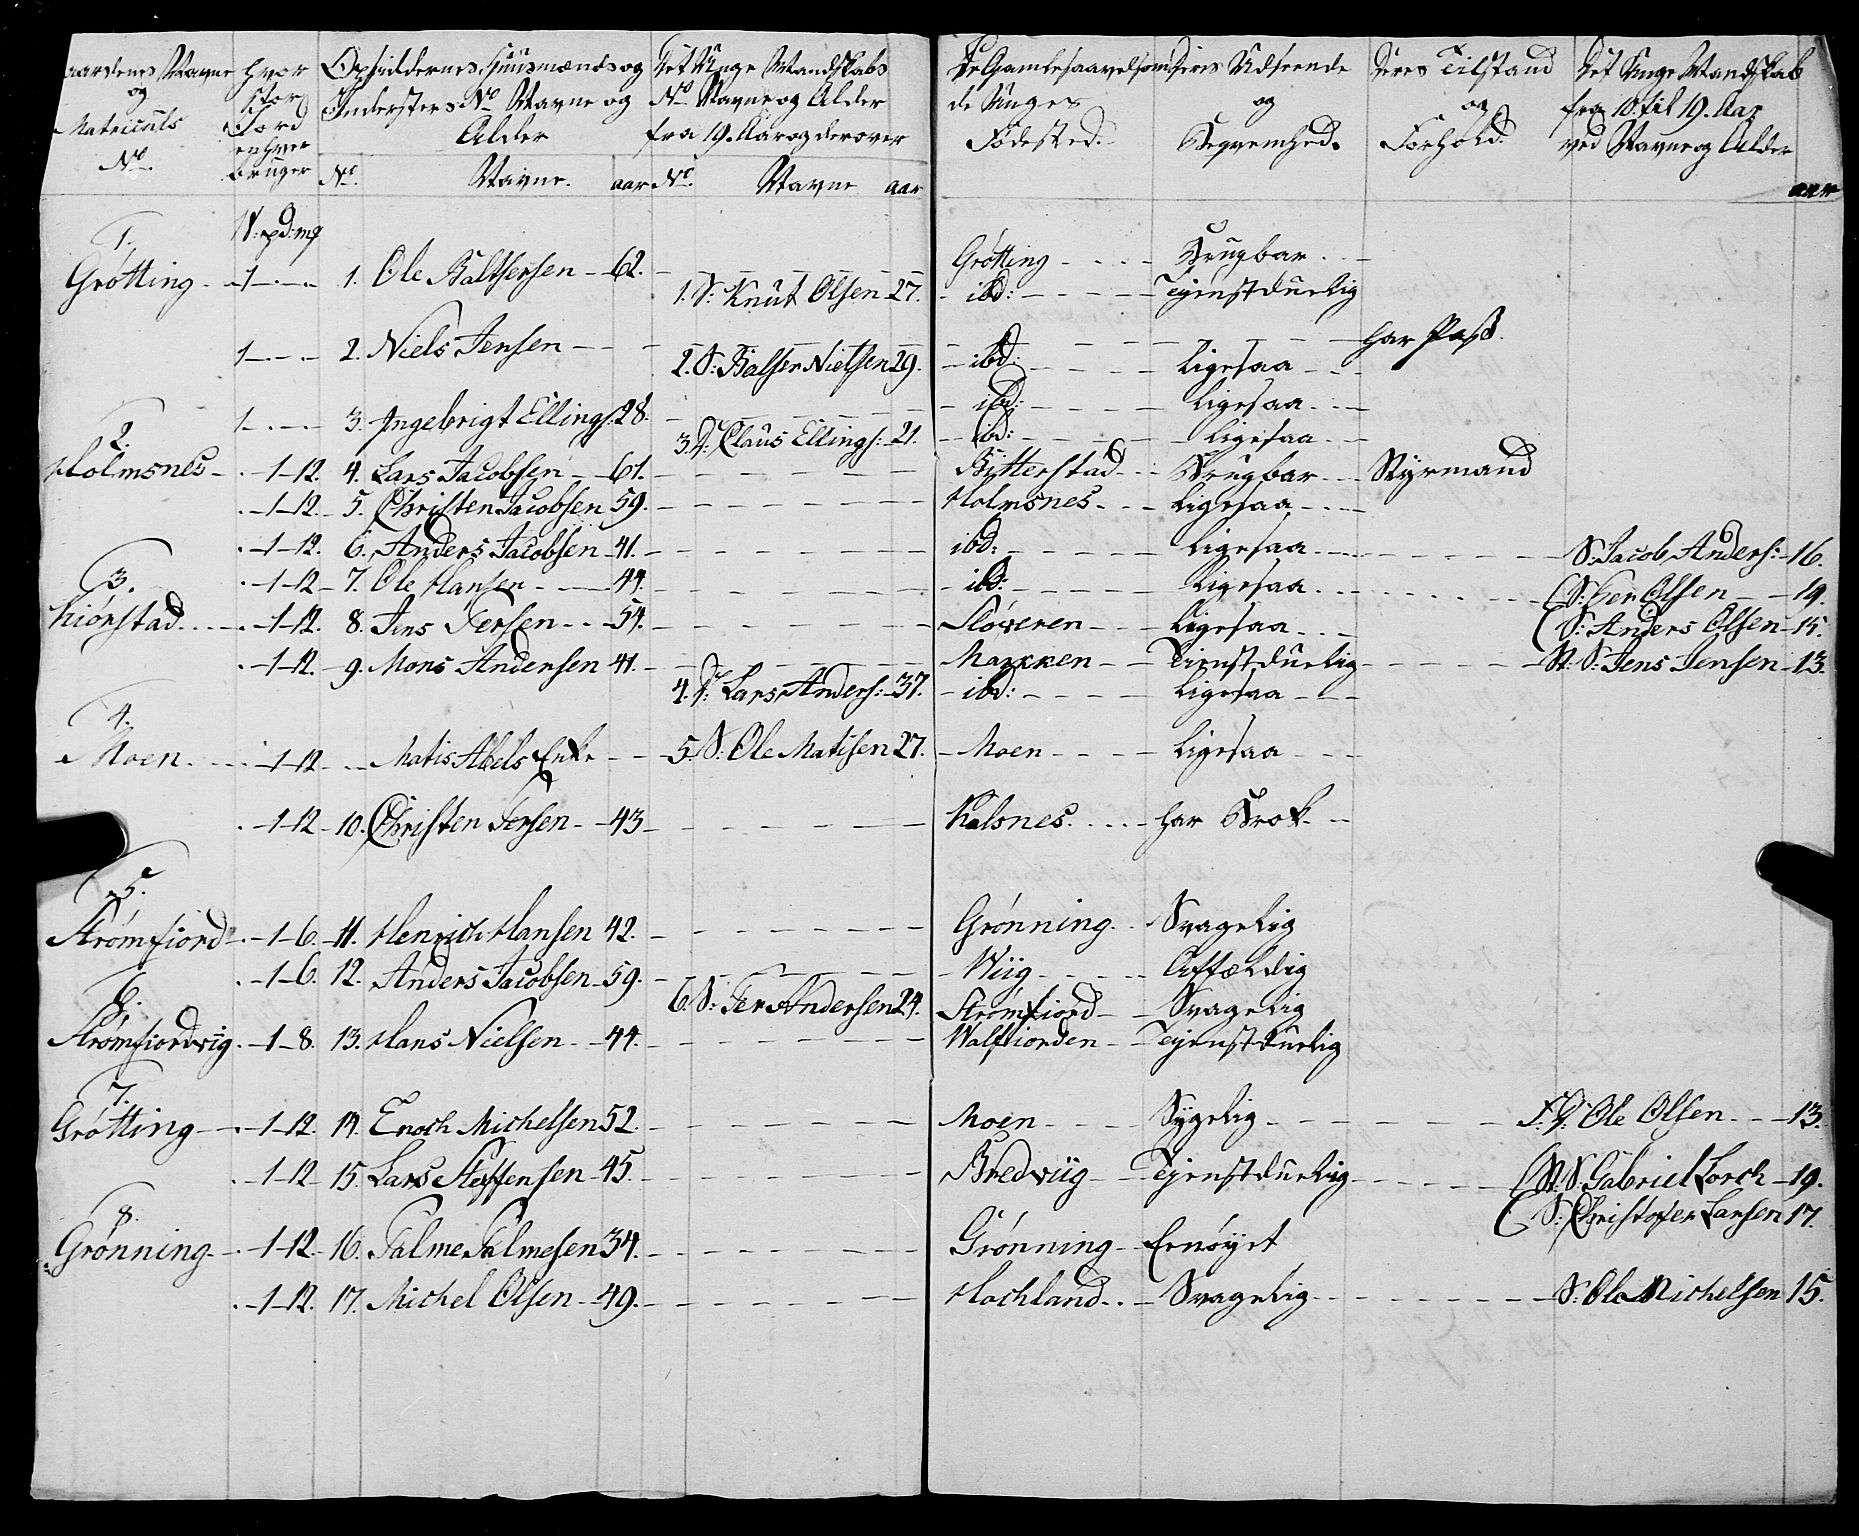 Gaardenes Navne og Matriculs No.
hvor stor Jord enhver bruger
Opsiddernes, Huusmænds og Indersters No Navne og Alder
No. Navne. aar
Det Unge Mandskabs No Navne og Alder fra 19. Aar og derover
No. Navne aar
De Gamle saavelsom de Unges Fødested.
Deres Udseende og Beqvemhed.
Deres Tilstand og Forhold.
Det Unge Mandskab fra 10. til 19. Aar ved Navne og Alder
aar
W: pd: mk
1.
Grøtting - 1 - - 1. Ole Baltsersen - 62. - Grøtting - - Brugbar - -
1. S: Knut Olsen 27. - ibd: - - Tienstduelig
1 - - - 2. Niels Jensen - - - - har Pass.
2. S: Balser Nielsen 29. - ibd: - - Ligesaa - -
1 - - - 3. Ingebrigt Ellings: 28. - ibd: - - Ligesaa - -
3. D: Claus Ellings: 21. - ibd: - - Ligesaa - -
2.
Holmsnes - 1-12. 4. Lars Jacobsen - 61. - Bitterstad - - Brugbar - - Styrmand
- 1-12. 5. Christen Jacobsen 59. - Holmsnes - - Ligesaa - -
- 1-12. 6. Anders Jacobsen - 41. - ibd: - - Ligesaa - - S: Jacob Anders: 16.
3.
- 1-12 - 7. Ole Hansen - - 44. - ibd: - - Ligesaa - - S: Per Olsen - - 19.
Kiørstad - 1-12. 8. Jens Persen - - 54. - Sløveren - - Ligesaa - - S: Anders Olsen - 15.
- 1-12. 9. Mons Andersen 41. - Marken - - Tienstduelig - - St: S: Jens Jensen - 13.
4. D: Lars Anders: - 37. - ibd: - - Ligesaa - -
4.
Moen - 1-12 - - Matis Abels Enke - - 5. S: Ole Matisen 27. - Moen - - Ligesaa - -
- 1-12 - 10. Christen Persen - - 43 - Kalsnes - - har Brok - -
5.
Strømfiord - 1-6. - 11. Henrich Hansen 42. - Grønning - Svagelig
- 1-6. 12. Anders Jacobsen - 59. - Wiig - - Affældig
6. S: Per Andersen 24. Strømfiord - - Svagelig
6.
Strømfiordvig. - 1-8. 13. Hans Nielsen - - 44. - Walfiorden - - Tienstduelig
7.
Grøtting - 1-12. 14. Enoch Michelsen 52. - Moen - - Sygelig - - F. D: Ole Olsen - - 13.
- 1-12 - 15. Lars Steffensen - 45. - Bredviig - Tienstduelig - - St: S: Gabriel Lorch - 19.
S: Christofer Larsen 17.
8.
Grønning - 1-12 - 16. Palme Palmesen 34. - Grønning - Ernøyet
- 1-12. 17. Michel Olsen - 49. - Hochland - - Svagelig - - S: Ole Michelsen 15.